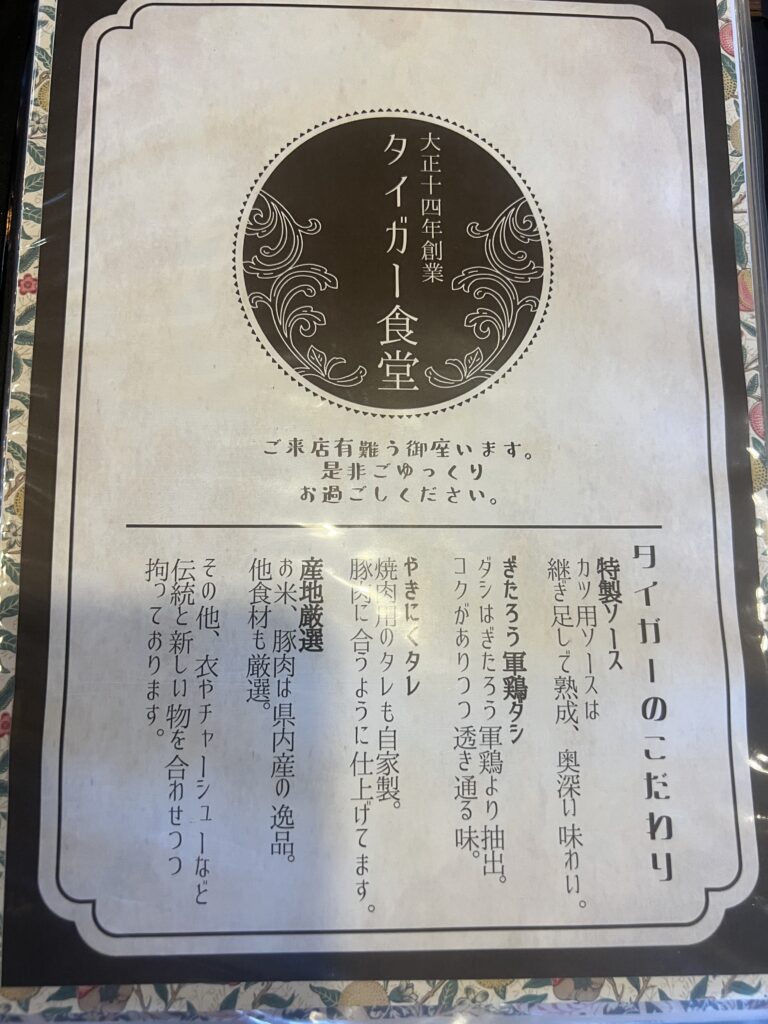 大正十四年創業
タイガー食堂
ご来店有難う御座います。
是非ごゆっくり
お過ごしください。
タイガーのこだわり
特製ソース
カツ用ソースは
継ぎ足しで熟成、奥深い味わい。
ぎたろう軍鶏ダシ
ダシはぎたろう軍鶏より抽出。
コクがありつつ透き通る味。
やきにくタレ
焼肉用のタレも自家製。
豚肉に合うように仕上げてます。
産地厳選
お米、豚肉は県内産の逸品。
他食材も厳選。
その他、衣やチャーシューなど
伝統と新しい物を合わせつつ
拘っております。